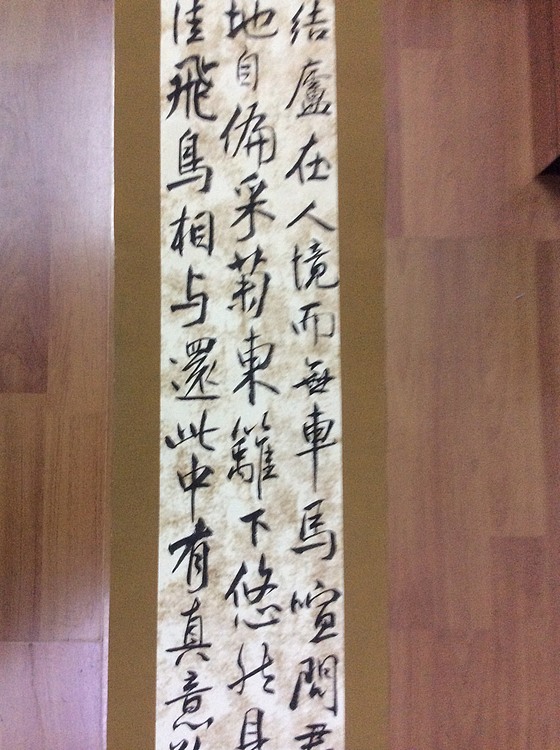 結廬在人境而無車馬喧問君
地自偏采菊東籬下悠然見
佳飛鳥相与還此中有真意欲